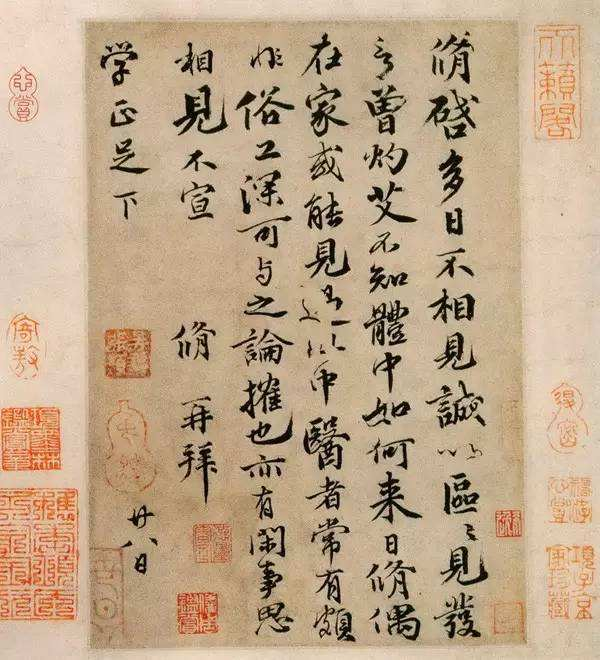 脩啓多日不相見誠以區〻見發
言曾灼艾不知體中如何来日脩偶
在家或能見過此中醫者常有頗
非俗工深可与之論搉也亦有閑事思
相見不宣 脩再拜
学正足下 廿八日
天籟閣
項子京家珍藏